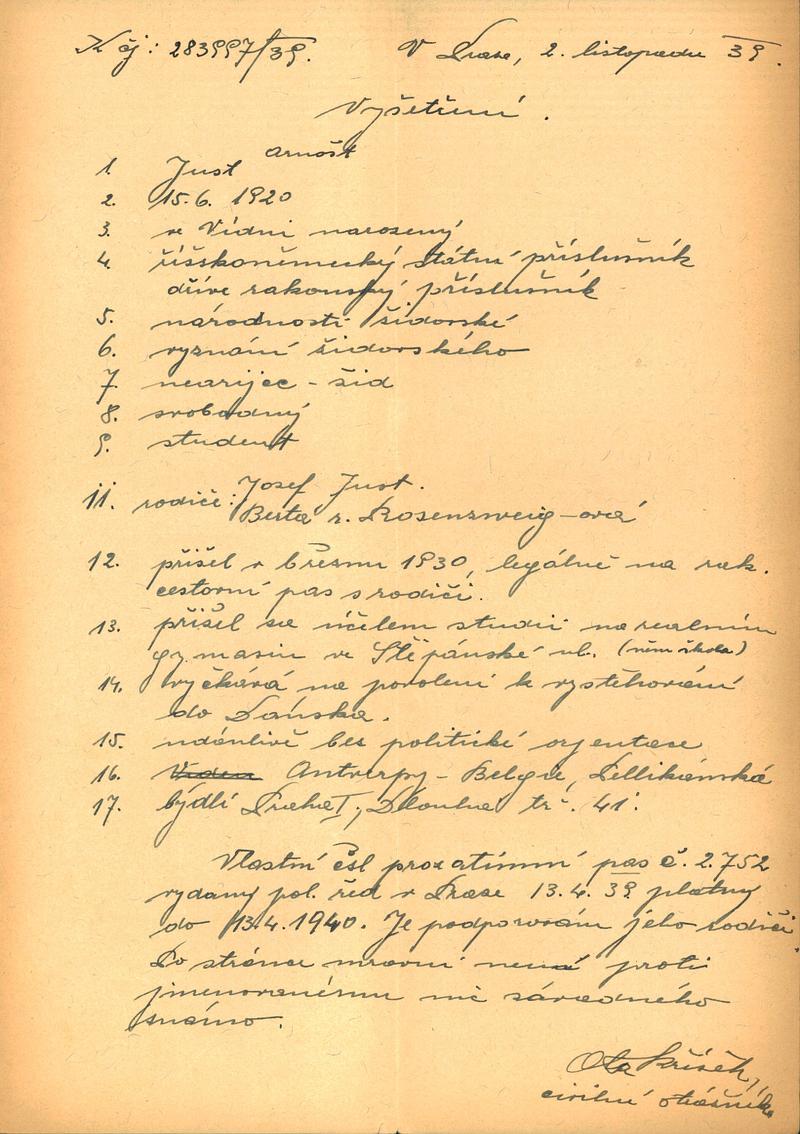 K čj: 283997/39. V Praze, 2. listopadu 39.
Vyšetření.
1. Just Arnošt
2. 15.6. 1920
3. ve Vídni narozený
4. říšskoněmecký státní příslušník
dříve rakouský příslušník
5. národnosti židovské
6. vyznání židovského
7. nearijec - žid
8. svobodný
9. student
11. rodiče: Josef Just.
Berta r. Rosenzweig-ová
12. přišel v březnu 1930, legálně na rak.
cestovní pas s rodiči.
13. přišel za účelem studií na realním
gymasiu ve Štěpánské ul. (něm škola)
14. vyčkává na povolení k vystěhování
do Dánska.
15. údánlivě bez politické orjentace
16. Vídeň Antverpy - Belgie, Pellikánská
17. bydlí Praha I, Dlouhá tř. 41.
Vlastní čsl prozatímní pas č. 2.752
vydaný pol. řed v Praze 13.4. 39 platný
do 13.4.1940. Je podporován jeho rodiči.
Po stránce mravní není proti
jmenovanému nic závadného
známo.
Ota
civilní strážník